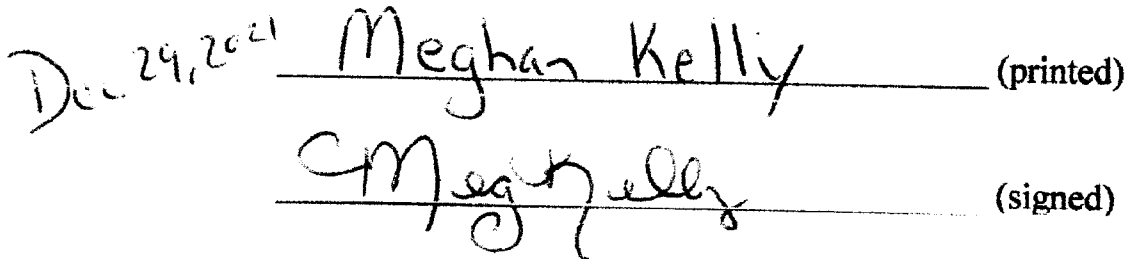 Dec. 29, 2021 Meghan Kelly (printed)
Meg Kelly (signed)